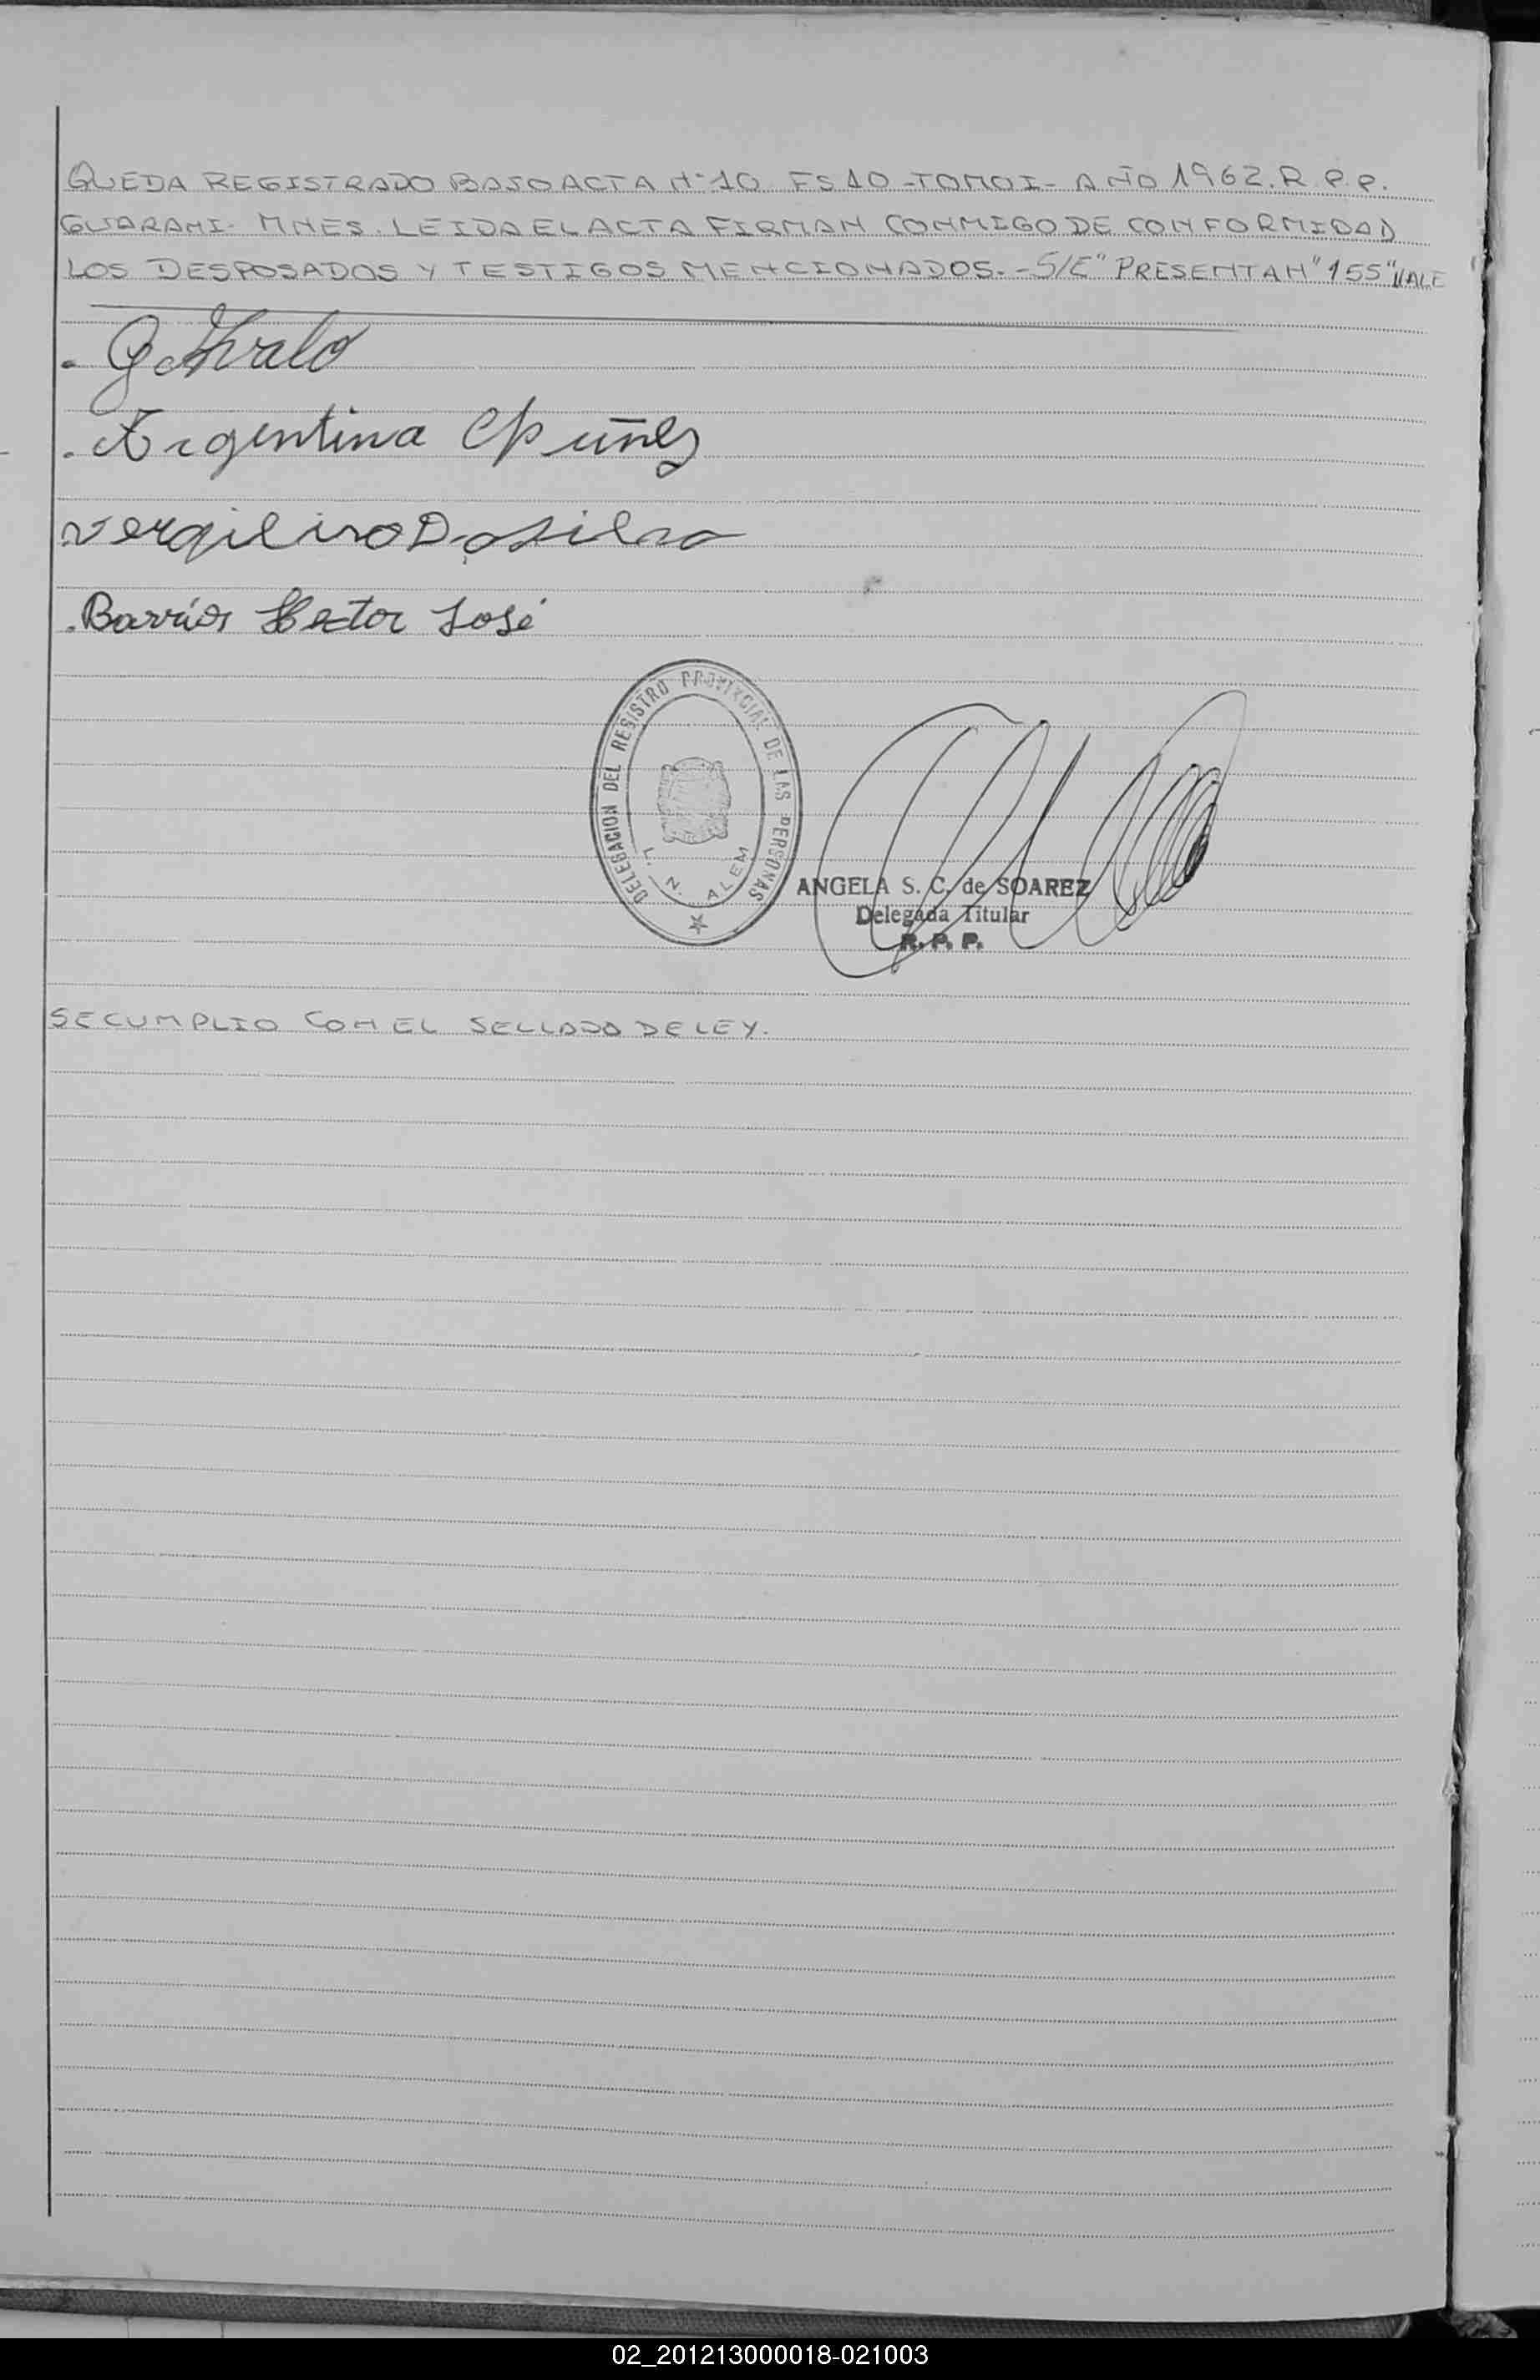 QUEDA REGISTRADO BAJO ACTA Nº 10 FS 10 - TOMO I - AÑO 1962. R. P. P.
GUARANI - MNES. LEIDA EL ACTA FIRMAN CONMIGO DE CONFORMIDAD
LOS DESPOSADOS Y TESTIGOS MENCIONADOS. - S/E" PRESENTAN" 155" VALE
Argentina Nuñez
Vergilino Da silva
Barrios Hector José
DELEGACION DEL REGISTRO PROVINCIAL DE LAS PERSONAS
L. N. ALEM
ANGELA S. C. de SOAREZ
Delegada Titular
R. P. P.
SE CUMPLIO CON EL SELLADO DE LEY.
02_201213000018-021003